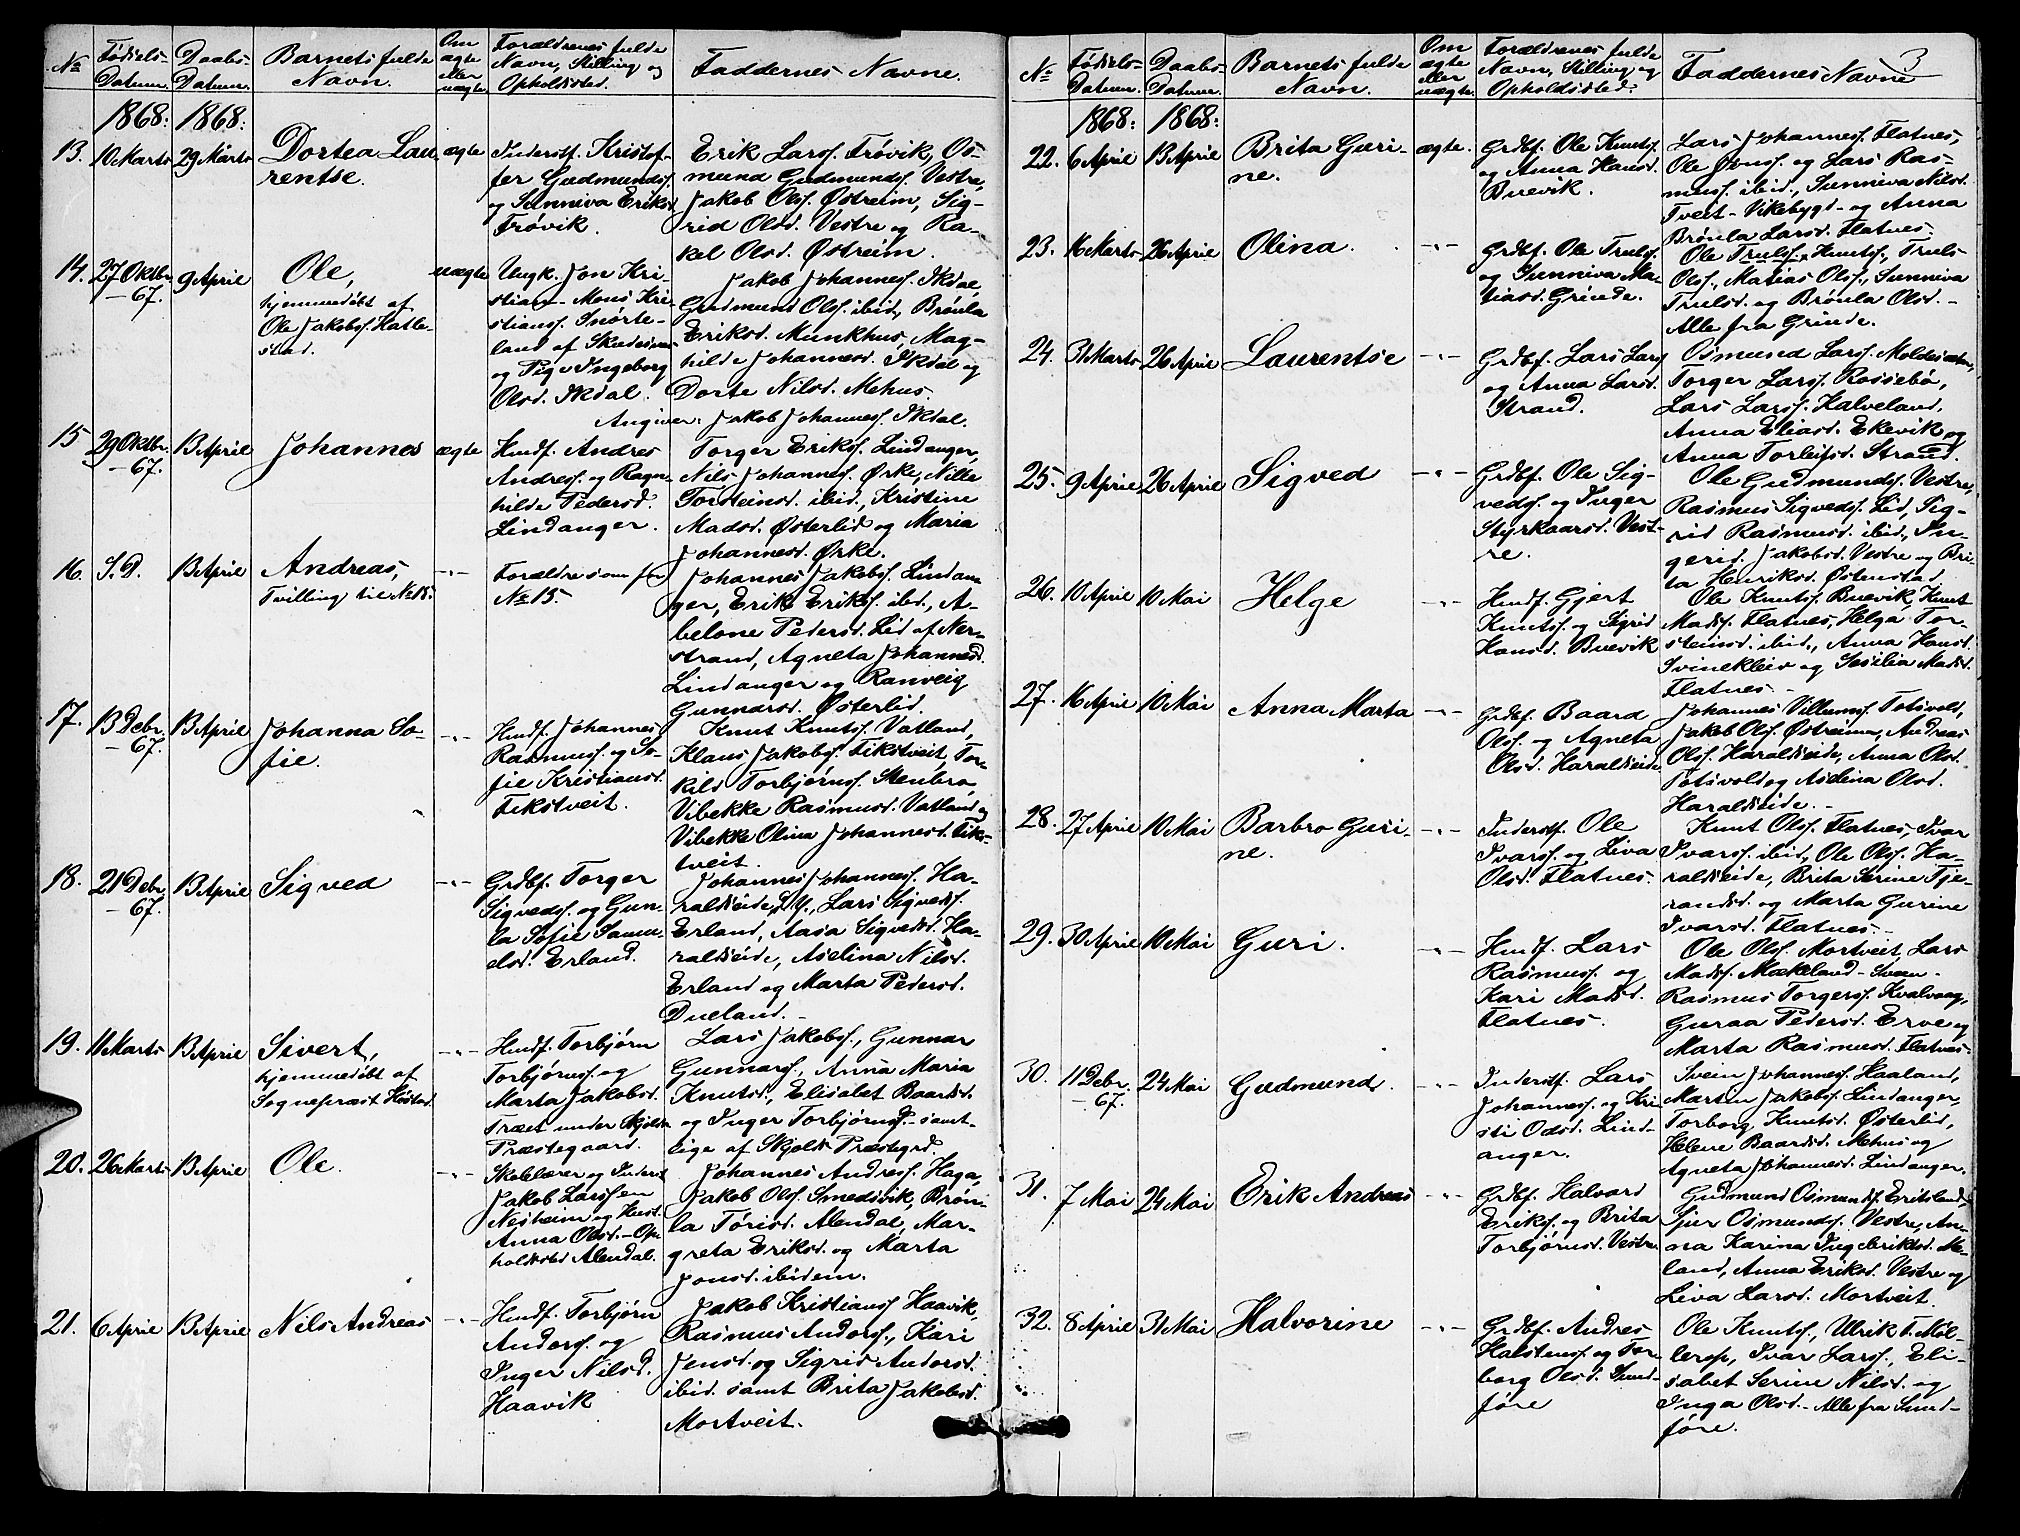 No
Fødsels-
Datum.
Daabs-
Datum.
Barnets fulde
Navn.
Om
ægte
eller
uægte.
Forældrenes fulde
Navn, Stilling og
Opholdssted.
Faddernes Navne.
1868: 1868:
13. 10 Marts 29 Marts
Dortea Lau
rentse.
ægte
Inderstf. Kristof-
fer Gudmunds.
og Sunniva Eriksd.
Frøvik.
Erik Larss. Frøvik, Os-
mund Gudmunds. Vestre,
Jakob Ols. Østreim, Sig-
rid Olsd. Vestre og Ra-
kel Olsd. Østreim.
14. 27 Oktbr. 9 April
- 67.
Ole,
hjemmedøbt af
Ole Jakobs. Hatle-
stad.
uægte
Ungk. Jon Kri-
stian - Mons Kri-
stians. Snørte-
land af Skudesnæs
og Pige Ingeborg
Olsd. Ikdal.
Jakob Johannes. Ikdal,
Gudmund Ols. ibid, Brønla
Eriksd. Munkhus, Mag-
hilde Johannesd. Ikdal og
Dorte Nilsd. Mehus.
Angiver: Jakob Johannes. Ikdal.
15. 29 Oktbr. 13 April
- 67.
Johannes
ægte
Husf. Andres
Andress. og Ragn-
hilde Pedersd.
Lindanger.
Torger Eriks. Lindanger,
Nils Johannes. Ørke, Nille
Torsteinsd. ibid., Kristine
Madsd. Østerlid og Maria
Johannesd. Ørke.
16. S. D. 13 April
Andreas,
Tvilling til No 15.
-"-
Forældre som for
No 15.
Johannes Jakobs. Lindan-
ger, Erik Eriks. ibid., A-
belone Pedersd. Lid af Ner-
strand, Agneta Johannesd.
Lindanger og Ranveig
Gunnarsd. Østerlid.
17. 13 Debr. 13 April
- 67.
Johanna So-
fie.
-"-
Husf. Johannes
Rasmuss. og So-
fie Kristiansd.
Fikstveit.
Knut Knuts. Vatland,
Klaus Jakobs. Fikstveit, Tor-
kild Torbjørns. Stenbro,
Vibekke Rasmusd. Vatland og
Vibekke Olina Johannesd. Fiks-
tveit.
18. 21 Debr. 13 April
- 67.
Sigved
-"-
Grdbf. Torger
Sigveds. og Gun-
la Sofie Samu-
elsd. Erland.
Johannes Johannes. Ha-
raldseide, d. Y., Lars Sigveds.
Erland, Aasa Sigvedsd. Ha-
raldseide, Aselina Nilsd.
Erland og Marta Pedersd.
Dueland.
19. 11 Marts 13 April
Sivert,
hjemmedøbt af
Sognepræst Høstad.
-"-
Husf. Torbjørn
Torbjørns. og
Marta Jakobsd.
Træet under Skjolds
Præstegaard.
Lars Jakobs., Gunnar
Gunnars., Anna Maria
Knutsd., Elisabet Baardsd.
og Inger Torbjørnsd. - samt-
lige af Skjolds Præstegrd.
20. 26 Marts 13 April
Ole.
-"-
Skolelærer og Inderst
Jakob Larssen
Nesheim og Hust.
Anna Olsd. - Op-
holdsted Alendal.
Johannes Andress. Haga,
Jakob Ols. Smedsvik, Brøn-
la Tørisd. Alendal, Mar-
greta Eriksd. og Marta
Jonsd. ibidem.
21. 6 April 13 April
Nils Andreas
-"-
Husf. Torbjørn
Anders. og
Inger Nilsd.
Haavik
Jakob Kristians. Haavik,
Rasmus Anders., Kari
Jensd. og Sigrid Andersd.
ibid. samt Brita Jakobsd.
Mortveit.
3
No
Fødsels-
Datum.
Daabs-
Datum.
Barnets fulde
Navn.
Om
ægte
eller
uægte.
Forældrenes fulde
Navn, Stilling og
Opholdssted.
Faddernes Navne
1868: 1868:
22. 6 April 13 April
Brita Guri-
ne.
ægte.
Grdbf. Ole Knuts.
og Anna Hansd.
Buevik.
Lars Johannes. Flatnes,
Ole Jons. og Lars Ras-
mus. ibid., Sunniva Nilsd.
Tveit - Vikebygd - og Anna
Brønla Larsd. Flatnes.
23. 16 Marts 26 April
Olina.
-"-
Grdbf. Ole Truls.
og Sunniva Ma-
tiasd. Grinde.
Ole Truls. Knuts., Truls
Ols., Matias Ols., Sunniva
Trulsd. og Brønla Olsd. -
Alle fra Grinde.
24. 31 Marts 26 April
Laurentse
-"-
Grdbf. Lars Lars.
og Anna Larsd.
Strand.
Osmund Lars. Moldesæter,
Torger Lars. Rossebø,
Lars Lars. Halveland,
Anna Eliasd. Ekevik og
Anna Torleifsd. Strand.
25. 9 April 26 April
Sigved
-"-
Grdbf. Ole Sig-
veds. og Inger
Styrkaarsd. Vest-
re.
Ole Gudmunds. Vestre,
Rasmus Sigveds. Lid, Sig-
rid Rasmusd. ibid., In-
gerid Jakobsd. Vestre og Bri-
ta Henriksd. Østenstad.
26. 10 April 10 Mai
Helge
-"-
Husf. Gjert
Knuts. og Sigrid
Hansd. Buevik
Ole Knuts. Buevik, Knut
Mads. Flatnes, Helga Tor-
steinsd. ibid., Anna Hansd.
Svinekleiv og Sesilia Madsd.
Flatnes. -
27. 16 April 10 Mai
Anna Marta
-"-
Grdbf. Baard
Ols. og Agneta
Olsd. Haraldseide
Johannes Villums. Totsvold,
Jakob Ols. Østreim, Andreas
Ols. Haraldseide, Anna Olsd.
Totsvold og Aselina Olsd.
Haraldseide. -
28. 27 April 10 Mai
Barbro Guri-
ne.
-"-
Inderstf. Ole
Ivars. og Liva
Olsd. Flatnes.
Knut Ols. Flatnes, Ivar
Ivars. ibid., Ole Ols. Ha-
raldseide, Brita Serine Tje-
randsd. og Marta Gurine
Ivarsd. Flatnes. -
29. 30 April 10 Mai
Guri.
-"-
Husf. Lars
Rasmus. og
Kari Madsd.
Flatnes.
Ole Ols. Mortveit, Lars
Mads. Mækeland - Sveen -
Rasmus Torgers. Kvalvaag,
Guraa Pedersd. Erve og
Marta Rasmusd. Flatnes.
30. 11 Debr. 24 Mai
- 67.
Gudmund.
-"-
Inderstf. Lars
Johannes. og Kri-
sti Odsd. Lind-
anger.
Svein Johannes. Haaland,
Martin Jakobs. Lindanger,
Torborg Knutsd. Østerlid,
Helene Baardsd. Mehus og
Agneta Johannesd. Lindanger.
31. 7 Mai 24 Mai
Erik Andreas
-"-
Grdbf. Halvard
Eriks. og Brita
Torbjørnsd. Vestre
Gudmund Osmunds. Eriksland,
Sjur Osmunds. Vestre, An-
na Karina Ingebriktsd. Me-
land, Anna Eriksd. Vestre og
Liva Larsd. Mortveit.
32. 8 April 31 Mai
Halvorine
-"-
Grdbf. Andres
Halstens. og Tor-
borg Olsd. Sund-
føre
Ole Knuts., Ulrik T. Møl-
lerop, Ivar Lars., Eli-
sabet Serine Nilsd. og
Inga Olsd. - Alle fra Sund-
føre.